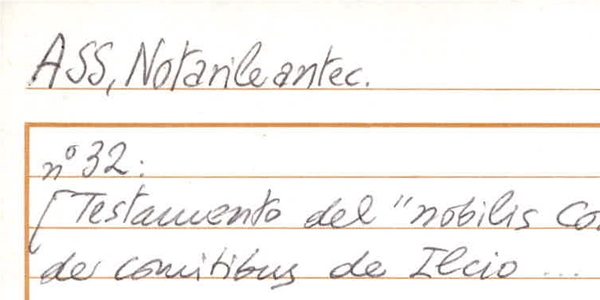 ASS, Notarile antec.
n° 32:
[Testamento del "nobilis
de comitibus de Ilcio ...